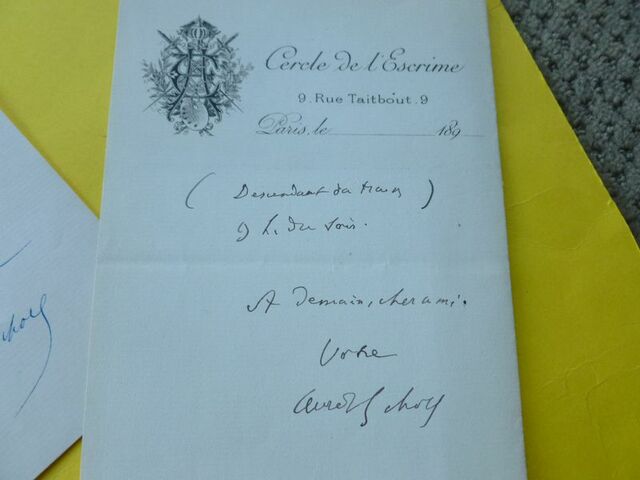 Cercle de l'Escrime
9. Rue Taitbout. 9
Paris, le 189
( Descendant du train )
9 h. du soir.
A demain, cher ami.
Votre
Aurél Scholl
choll